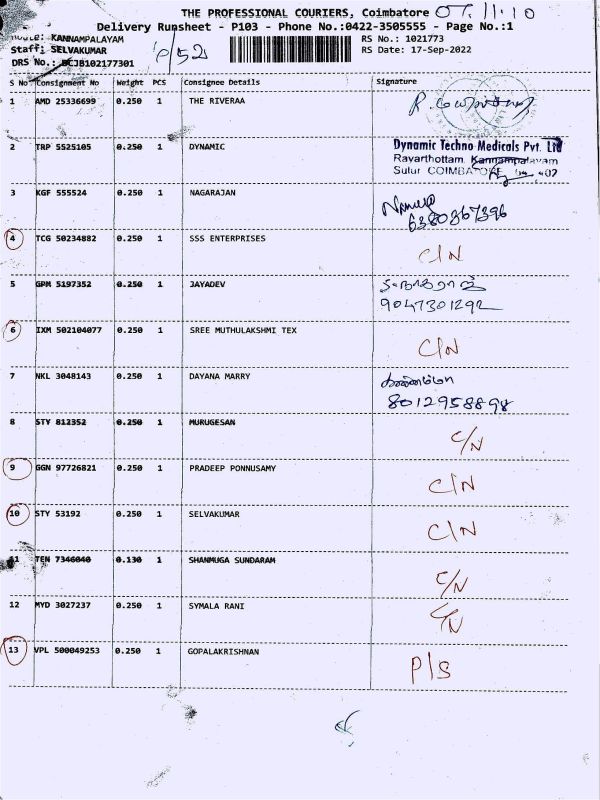 THE PROFESSIONAL COURIERS, Coimbatore 07.11.10
Delivery Runsheet - P103 - Phone No.:0422-3505555 - Page No.:1
KANNAMPALAYAM
RS No.: 1021773
Staff: SELVAKUMAR
P/52
RS Date: 17-Sep-2022
DRS No.: BCJB102177301
S No Consignment No Weight PCS Consignee Details Signature
1 AMD 25336699 0.250 1 THE RIVERAA
2 TRP 5525105 0.250 1 DYNAMIC Dynamic Techno Medicals Pvt. Ltd
Ravarthottam, Kannampalayam
Sulur COIMBATORE 402
3 KGF 555524 0.250 1 NAGARAJAN
6380867396
4 TCG 50234882 0.250 1 SSS ENTERPRISES C/N
5 GPM 5197352 0.250 1 JAYADEV
9047301292
6 IXM 502104077 0.250 1 SREE MUTHULAKSHMI TEX C/N
7 NKL 3048143 0.250 1 DAYANA MARRY கண்ணம்மா
8012958898
8 STV 812352 0.250 1 MURUGESAN C/N
9 GGN 97726821 0.250 1 PRADEEP PONNUSAMY C/N
10 STY 53192 0.250 1 SELVAKUMAR C/N
11 TEN 7346040 0.130 1 SHANMUGA SUNDARAM C/N
12 MYD 3027237 0.250 1 SYMALA RANI C/N
13 VPL 500049253 0.250 1 GOPALAKRISHNAN P/S